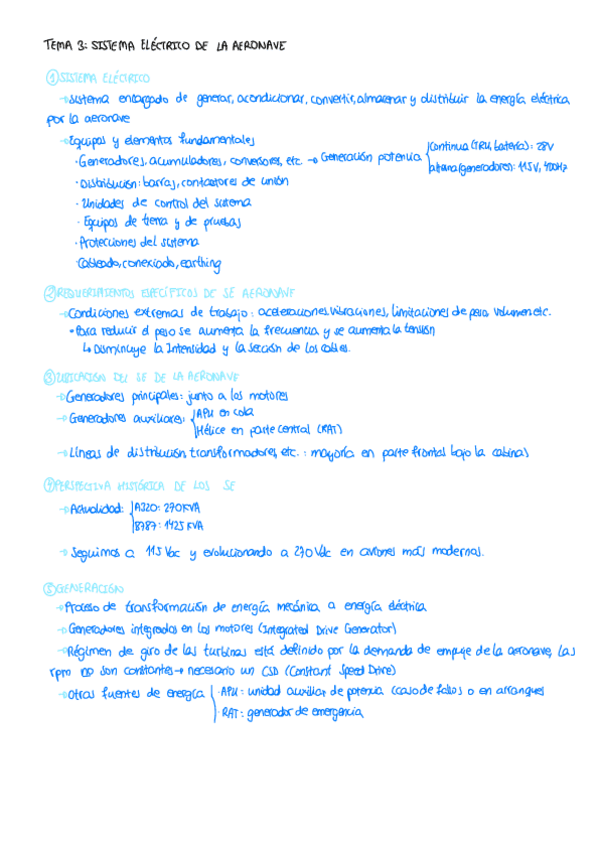 TEMA 3: SISTEMA ELÉCTRICO DE LA AERONAVE
① SISTEMA ELÉCTRICO
→ Sistema encargado de generar, acondicionar, convertir, almacenar y distribuir la energía eléctrica
por la aeronave
→ Equipos y elementos fundamentales
· Generadores, acumuladores, conversores, etc. → Generación potencia { Continua (TRU, batería): 28V
alterna (generadores): 115V, 400Hz
· Distribución: barras, contactores de unión
· Unidades de control del sistema
· Equipos de tierra y de pruebas
· Protecciones del sistema
· Cableado, conexiado, earthing
② REQUERIMIENTOS ESPECÍFICOS DE SE AERONAVE
→ Condiciones extremas de trabajo: aceleraciones, vibraciones, limitaciones de peso, volumen etc.
• Para reducir el peso se aumenta la frecuencia y se aumenta la tensión
↳ Disminuye la Intensidad y la sección de los cables.
③ UBICACIÓN DEL SE DE LA AERONAVE
→ Generadores principales: junto a los motores
→ Generadores auxiliares: { APU en cola
Hélice en parte central (RAT)
→ Líneas de distribución, transformadores, etc.: mayoría en parte frontal bajo la cabina
④ PERSPECTIVA HISTÓRICA DE LOS SE
→ Actualidad: { A320: 270KVA
B787: 1425KVA
→ Seguimos a 115 Vac y evolucionando a 270 Vdc en aviones más modernos.
⑤ GENERACIÓN
→ Proceso de transformación de energía mecánica a energía eléctrica
→ Generadores integrados en los motores (Integrated Drive Generator)
→ Régimen de giro de las turbinas está definido por la demanda de empuje de la aeronave, las
rpm no son constantes → necesario un CSD (Constant Speed Drive)
→ Otras fuentes de energía { · APU: unidad auxiliar de potencia (caso de fallos o en arranques
· RAT: generador de emergencia